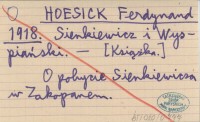 HOESICK Ferdynand
1918. Sienkiewicz i Wys-
piański. — [Książka.]
O pobycie Sienkiewicza
w Zakopanem.